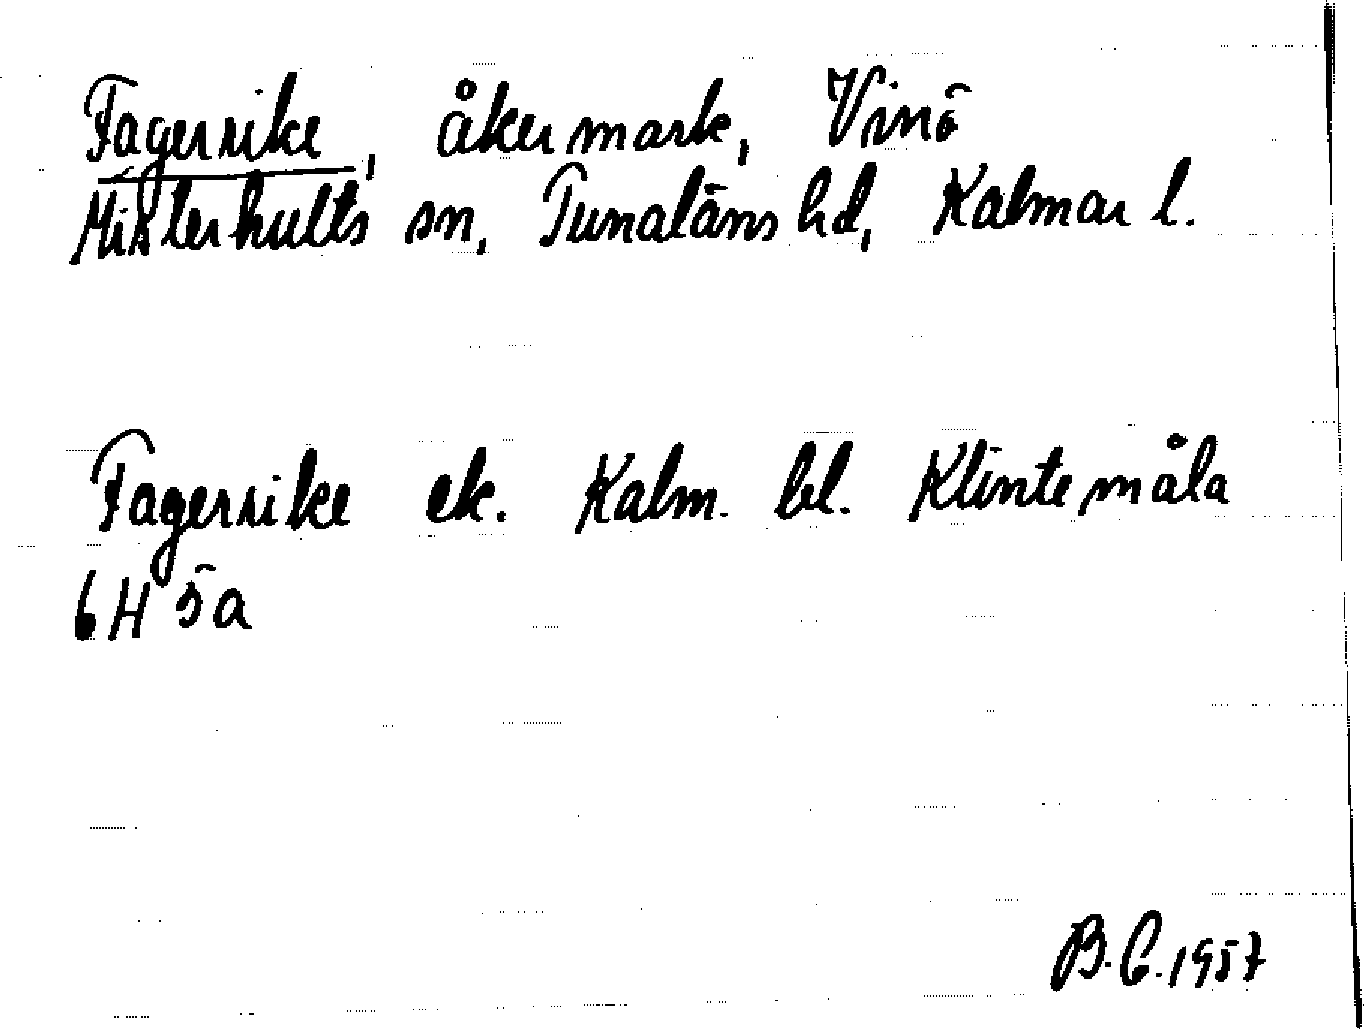 Fagerrike, åkermark, Vinö
Misterhults sn, Tunaläns hd, Kalmar l.
Fagerrike ek. Kalm. bl. Klintemåla
6H 5a
B.C. 1957